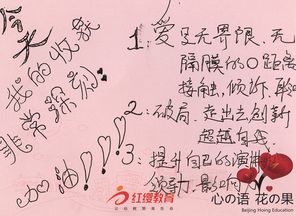 今天
我的收获
非常深刻
加油!!!
1: 爱是无界限、无
隔膜的0距离
接触,倾诉、聆
2: 破局、走出去创新
超越自己
3: 提升自己的演讲
领导,影响力
红缨教育
心の语 花の果
Beijing Hong Education